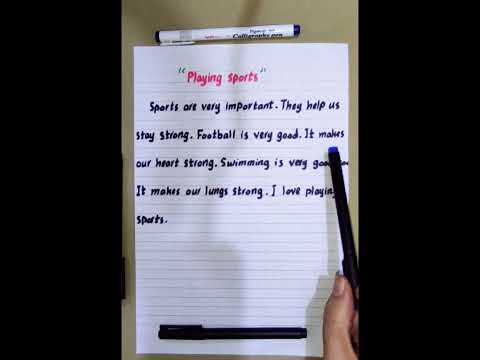 Calligraphy pen
"Playing sports"
Sports are very important. They help us
stay strong. Football is very good. It makes
our heart strong. Swimming is very good
It makes our lungs strong. I love playing
sports.